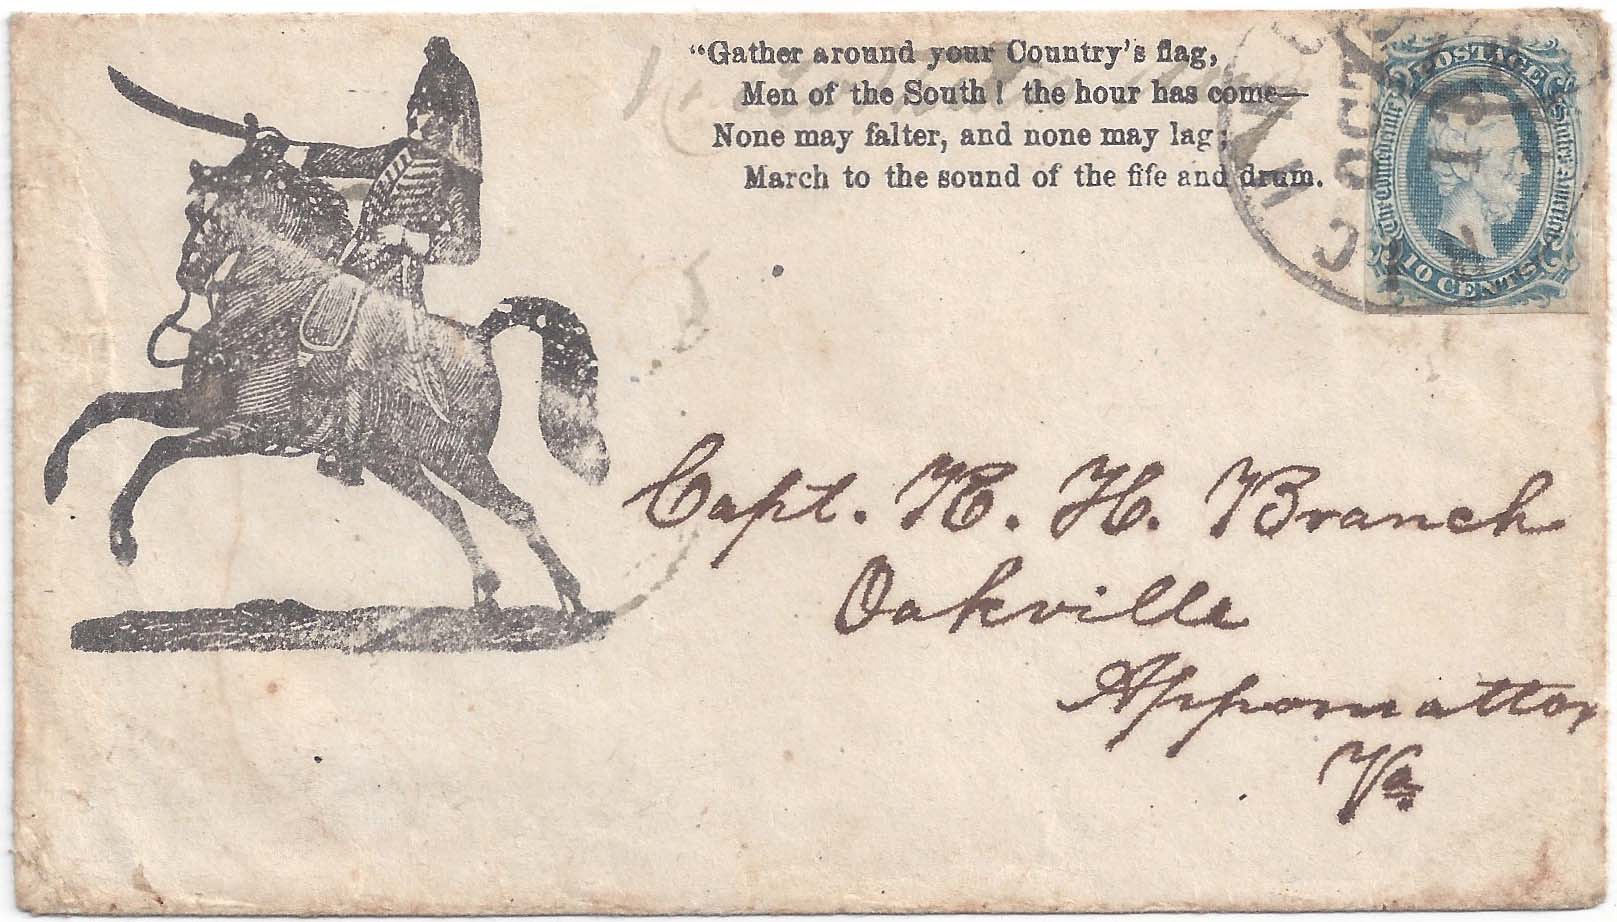 "Gather around your Country's flag,
Men of the South! the hour has come—
None may falter, and none may lag;
March to the sound of the fife and drum.
POSTAGE
The Confederate States of America
10 CENTS
OCT
Capt. R. H. Branch
Oakville
Appomattox
Va